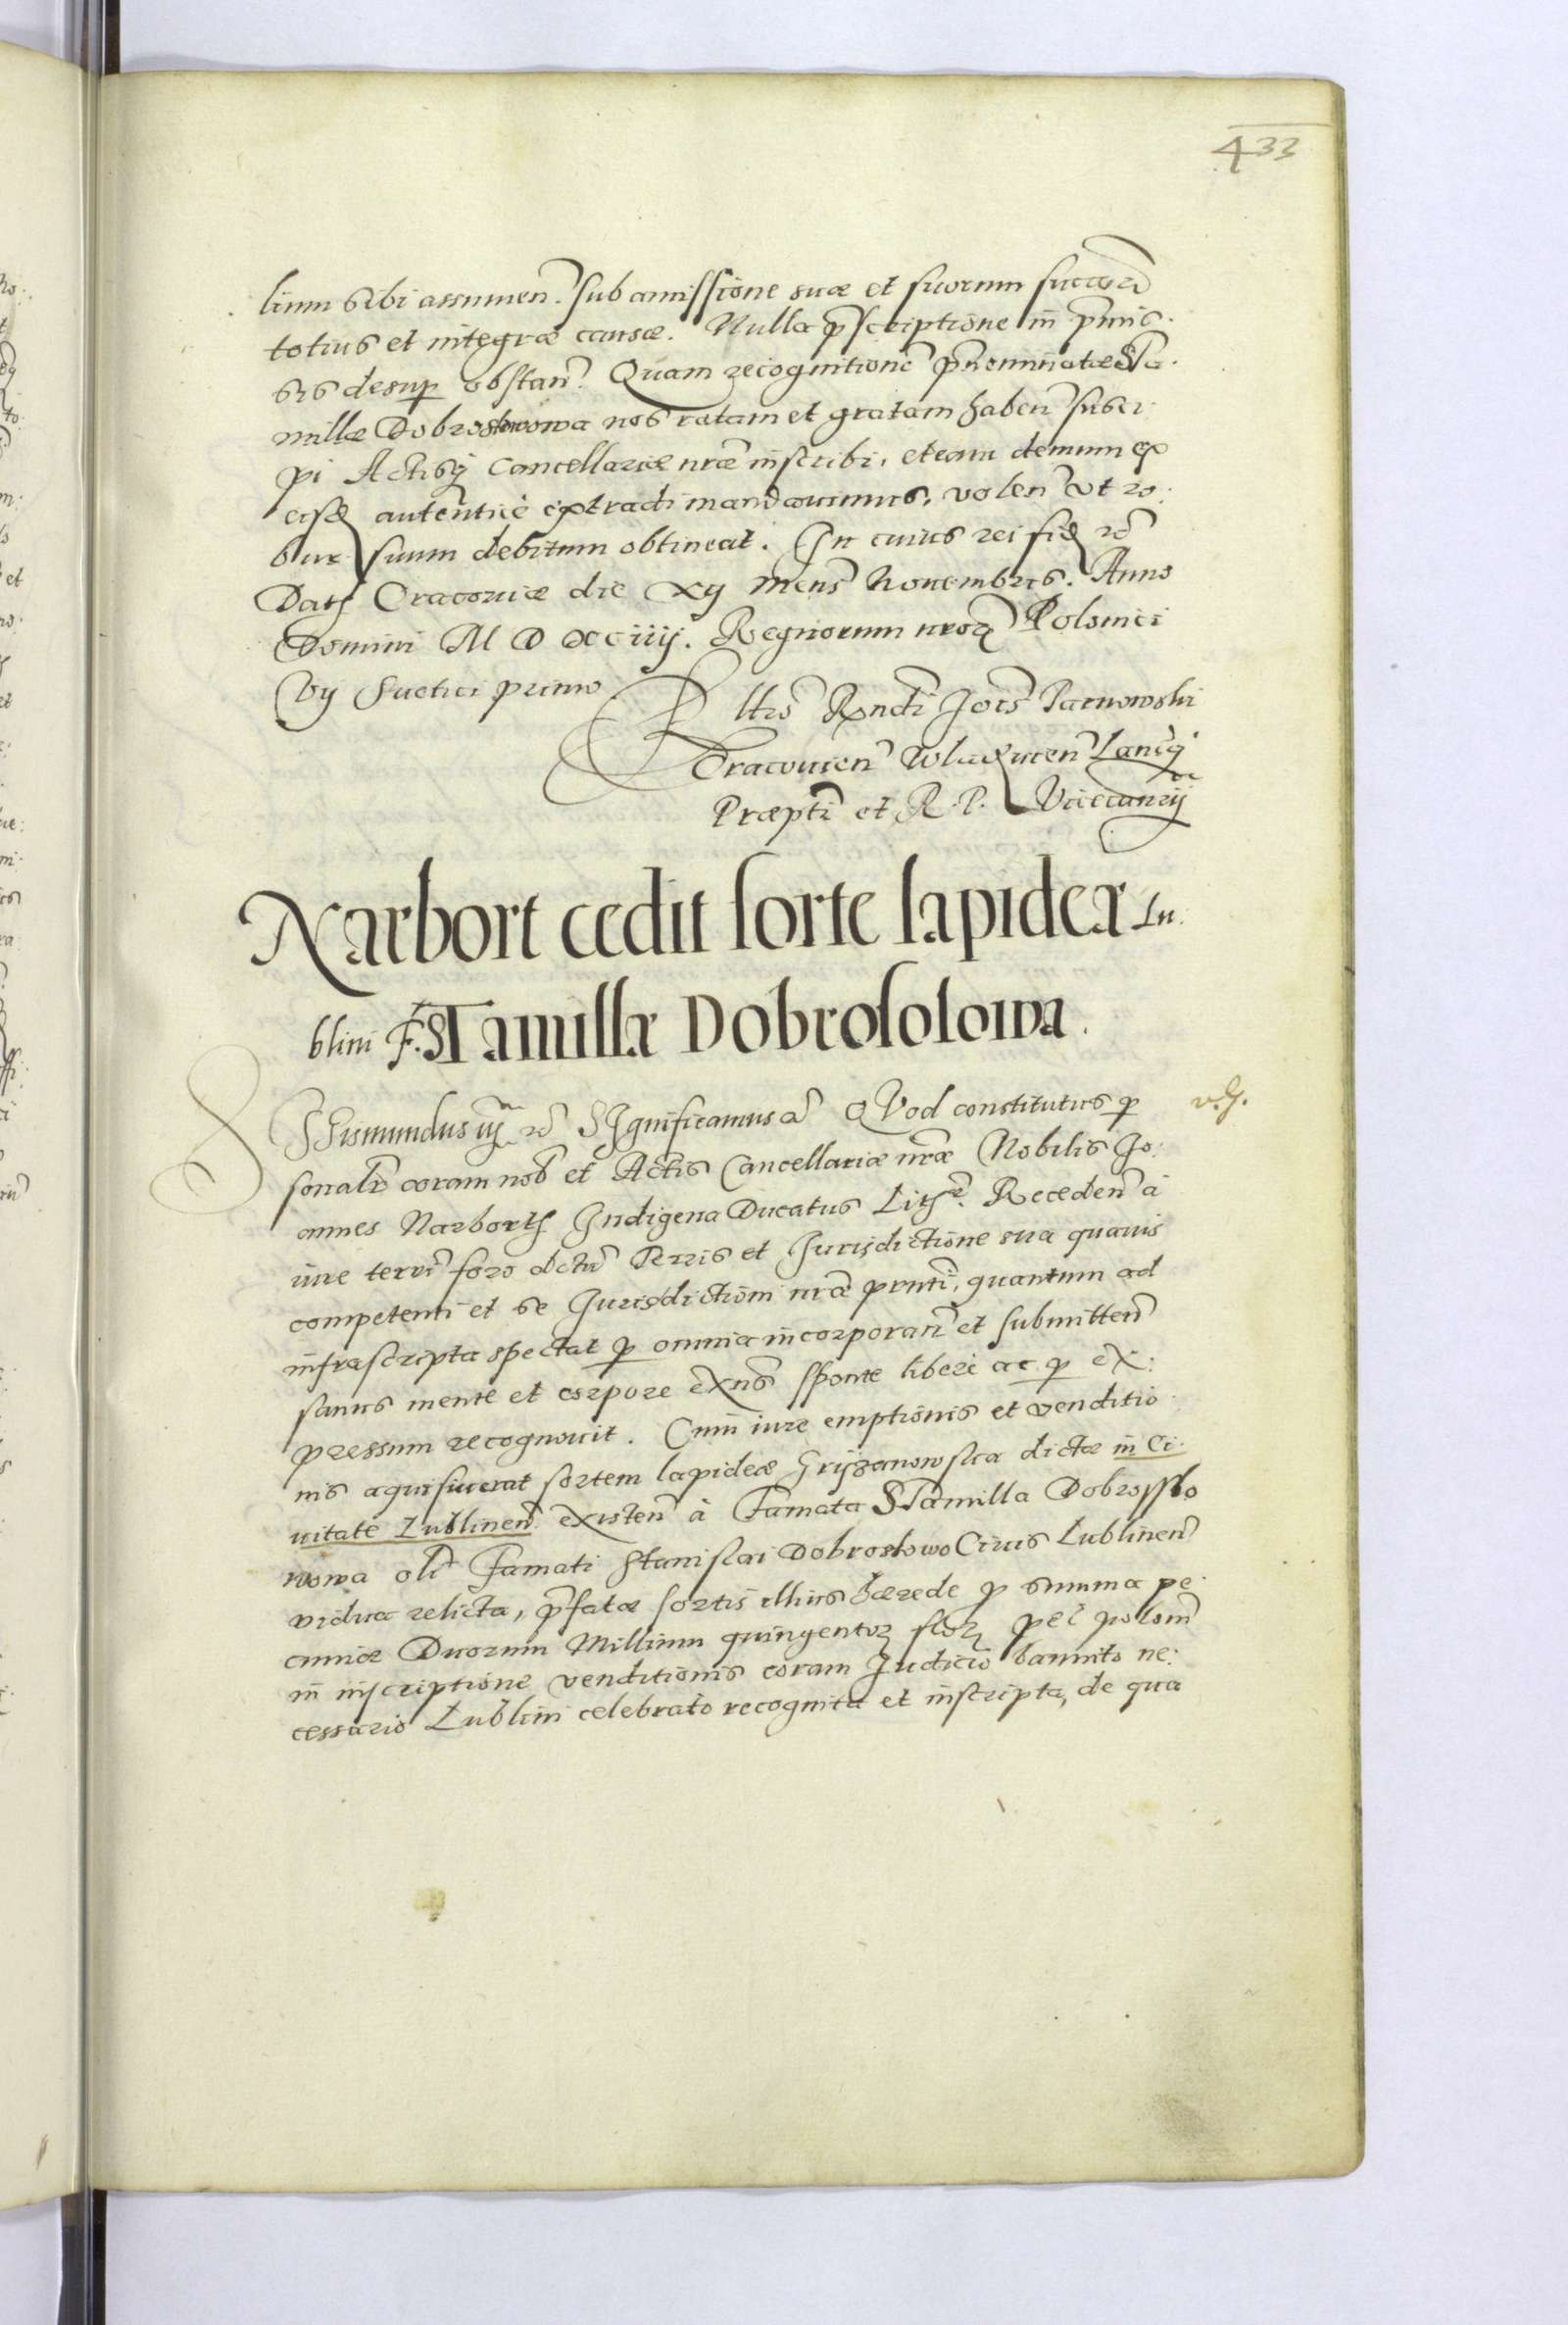 433
lium sibi assumen̄. sub amissione suæ et suorum succ̄
totius et integræ causæ. Nulla p̄scriptione in p̄mis:
sis desup obstan̄. Quam recognitionē p̄nominatæ STa:
millæ Dobroslowowa nos ratam et gratam haben̄ susci:
pi Actisq́ Cancellariæ nr̄æ inscribi, et eam demum ex
eisd autenticè extradi mandavimus, volen̄ vt ro:
bur suum debitum obtineat. In cuius rei fid rc̄
Dat Cracoviæ die xij mens̄ Novembris. Anno
Domini M D XCiiij. Regnorum nrorum Polonici
Vij Suetici primo
Rltio Rndi Jōis Tarnowski
Cracovien̄ Wladicien̄ Lancī
Præpti et R. P. Vicecanrij
Narbort cedit sorte lapideæ Lu:
blini F. STamillæ Dobrosolowa.
SJgismundus iij rc̄ SJgnificamus a QVod constitutus p
v. g.
sonalr̄ coram nob et Actis Cancellariæ nr̄æ Nobilis Jo:
annes Narborth Indigena Ducatus Lith. Receden̄ à
iure terr̄i foro dctr̄ Terris et Jurisdictione sua quavis
competenti et se Jurisdictioni nr̄æ pnti, quantum ad
infrascripta spectat p omnia incorporan̄ et submitten̄
sanus mente et corpore exn̄s sponte libere ac p ex:
pressum recognovit. Cum iure emptionis et venditio:
nis aquisiverat sortem lapideæ Grÿzanowska dictæ in Ci:
uitate Lublinen̄ existen̄ à Famata STamilla Dobrosslo
wowa oli Famati Stanislai Dobroslowo Civis Lublinen̄
vidua relicta, p̄fatæ sortis illius hærede p summa pe:
cuniæ Duorum Millium quingentor flor pec̄ polon̄
in inscriptione venditionis coram Judicio bannito ne:
cessario Lublini celebrato recognita et inscripta, de qua